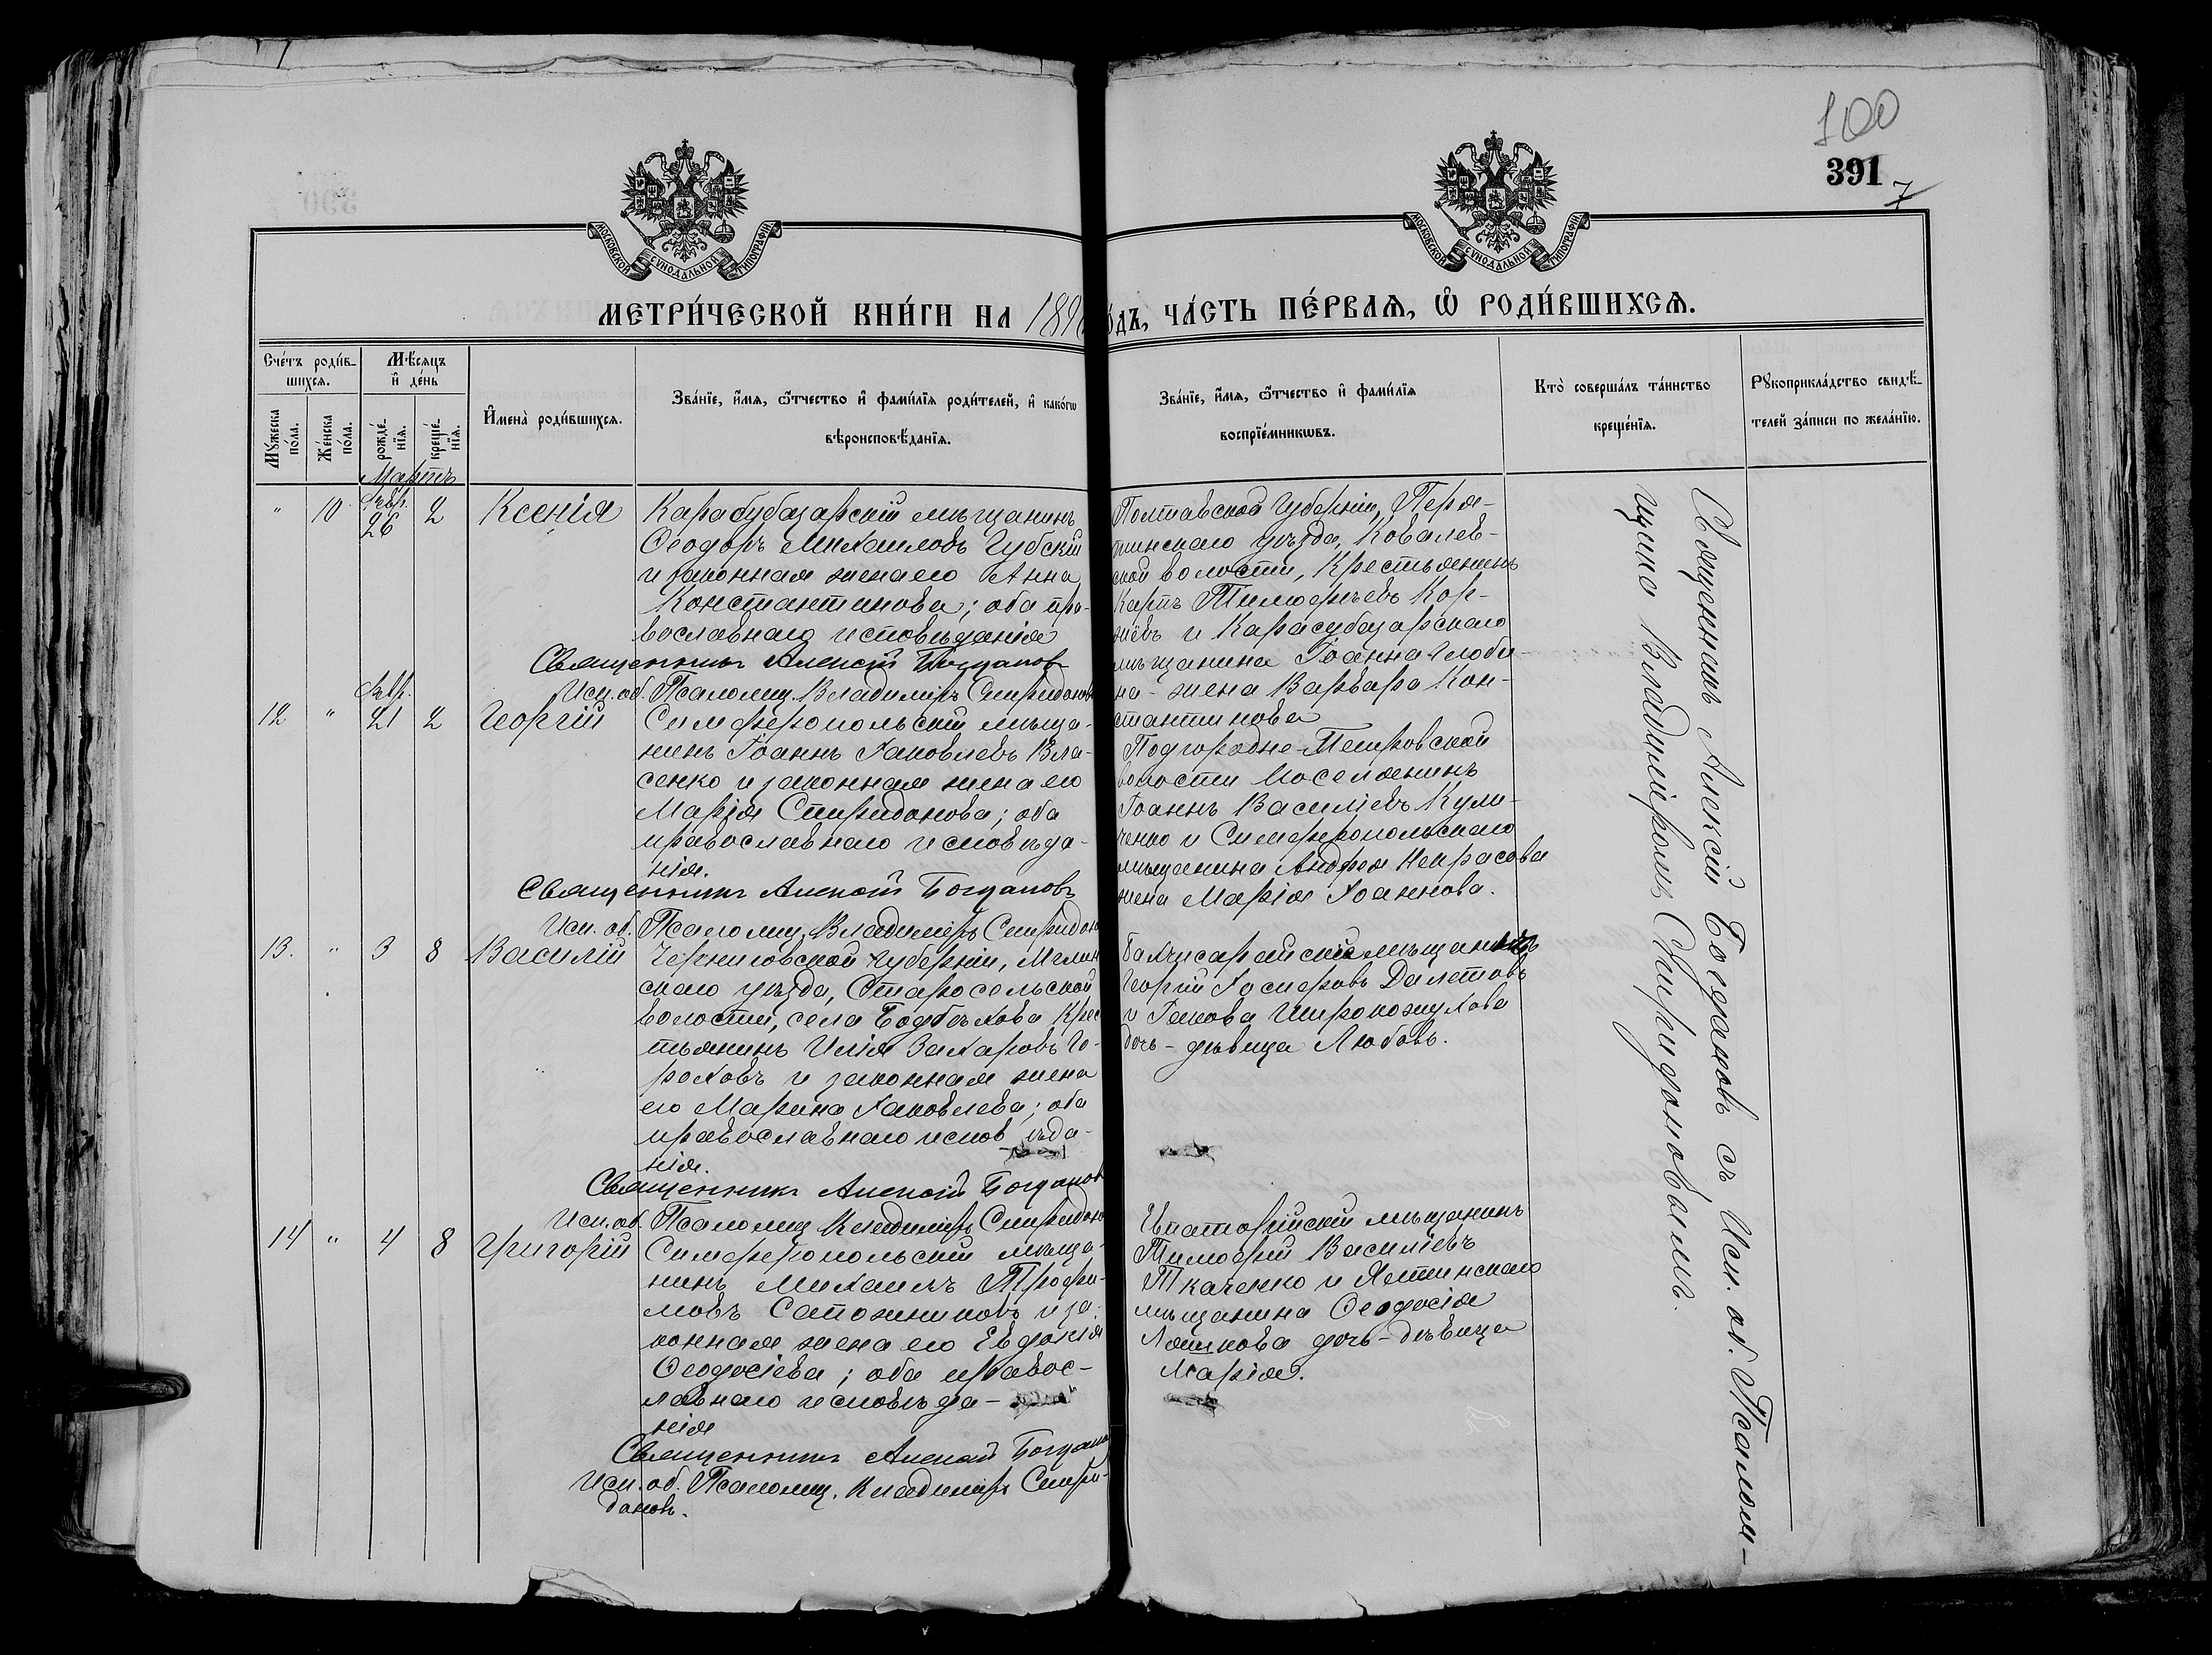 100
391
7
МОСКОВСКОЙ СѴНОДАЛЬНОЙ ТИПОГРАФІИ
МОСКОВСКОЙ СѴНОДАЛЬНОЙ ТИПОГРАФІИ
МЕТРИ́ЧЕСКОЙ КНИ́ГИ НА 189
о́дъ, ЧА́СТЬ ПЕ́РВАѦ, Ѡ РОДИ́ВШИХСѦ.
Сче́тъ роди́в-
шихсѧ.
Мꙋ́жеска по́ла.
Же́нска по́ла.
Мѣ́сѧцъ и҆ де́нь
рожде́нїѧ.
креще́нїѧ.
И҆мена̀ роди́вшихсѧ.
Зва́нїе, и҆́мѧ, ѻ҆́тчество и҆ фами́лїѧ роди́телей, и҆ како́гѡ
вѣроисповѣ́данїѧ.
Зва́нїе, и҆́мѧ, ѻ҆́тчество и҆ фами́лїѧ
воспрїе́мникѡвъ.
Кто̀ соверша́лъ та́инство
креще́нїѧ.
Рꙋкоприкла́дство свидѣ́-
телей за́писи по жела́нїю.
Мартъ
" 10 Февр. 26 2 Ксенія
Карасубазарскій мѣщанинъ
Ѳеодоръ Михаиловъ Губскій
и законная жена его Анна
Константинова; оба пра-
вославнаго исповѣданія
Священникъ Алексій Богданов
Исп. об. Псаломщ. Владиміръ Спиридонов
Полтавской губерніи, Пиря-
тинскаго уѣзда, Ковалев-
ской волости, Крестьянинъ
Карпъ Тимофѣевъ Кор-
нѣвъ и Карасубазарскаго
мѣщанина Іоанна Глоби-
на - жена Варвара Кон-
стантинова
12 " Февр. 21 2 Георгій
Симферопольскій мѣща-
нинъ Іоаннъ Іаковлевъ Вла-
сенко и законная жена его
Марія Спиридонова; оба
православнаго исповѣда-
нія.
Священникъ Алексій Богдановъ
Исп. об. Псаломщ. Владиміръ Спиридон
Подгородне-Петровской
волости поселянинъ
Іоаннъ Василіевъ Кули-
ченко и Симферопольскаго
мѣщанина Андрея Некрасова
жена Марія Іоаннова.
13. " 3 8 Василій
Черниговской губерніи, Мглин
скаго уѣзда, Старосельской
волости, села Крес
тьянинъ Илія Захаровъ Го-
роховъ и законная жена
его Марина Іаковлева; оба
православнаго исповѣда-
нія.
Священникъ Алексій Богданов
Исп. об. Псаломщ Владиміръ Спиридон
Бахчисарайскій мѣщанинъ
Георгій Іосифовъ Далетовъ
и Іакова
дочь - дѣвица Любовь.
14 " 4 8 Григорій
Симферопольскій мѣща-
нинъ Михаилъ Трофи-
мовъ Сапожниковъ и за-
конная жена его Евдокія
Ѳеодосіева; оба правос-
лавнаго исповѣда-
нія
Священникъ Алексій Богдано
Исп. об. Псаломщ. Владиміръ Спири-
доновъ.
Евпаторійскій мѣщанинъ
Тимофей Василіевъ
Ткаченко и Ялтинскаго
мѣщанина Ѳеодосія
дочь - дѣвица
Марія.
Священникъ Алексій Богдановъ съ Исп. об. Псалом-
щика Владиміромъ Спиридоновымъ.